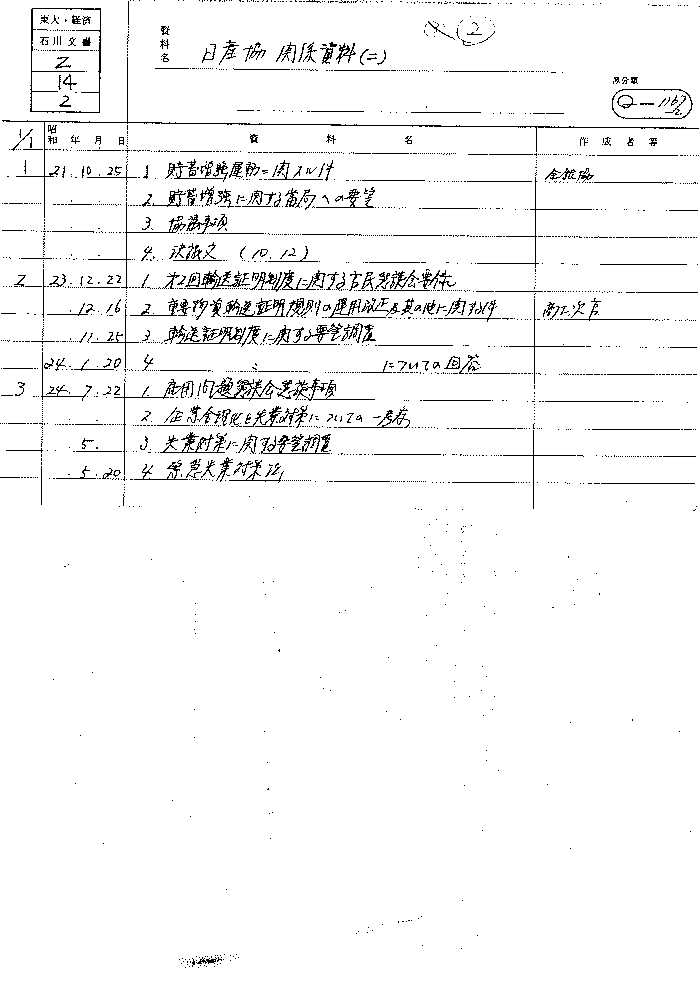 東大・経済
石川文書
Z
14
2
資料名
日産協 関係資料(二)
2
原分類
Q-1167
1/1
昭和 年 月 日 資料名 作成者等
1 21.10.25 1. 貯蓄増強運動ニ関スル件
2. 貯蓄増強に関する当局への要望
3. 協議事項
4. 決議文 (10.12)
2 23.12.22 1. 第2回輸送証明制度に関する官民懇談会要領
12.16 2. 重要物資輸送証明規則の運用改正及其の他に関する件 商工次官
11.25 3. 輸送証明制度に関する要望調査
24.1.20 4. 〃 についての回答
3 24.7.22 1. 雇用問題懇談会懇談事項
2. 企業合理化と失業対策についての一考察
5. 3. 失業対策に関する要望調査
5.20 4. 緊急失業対策法